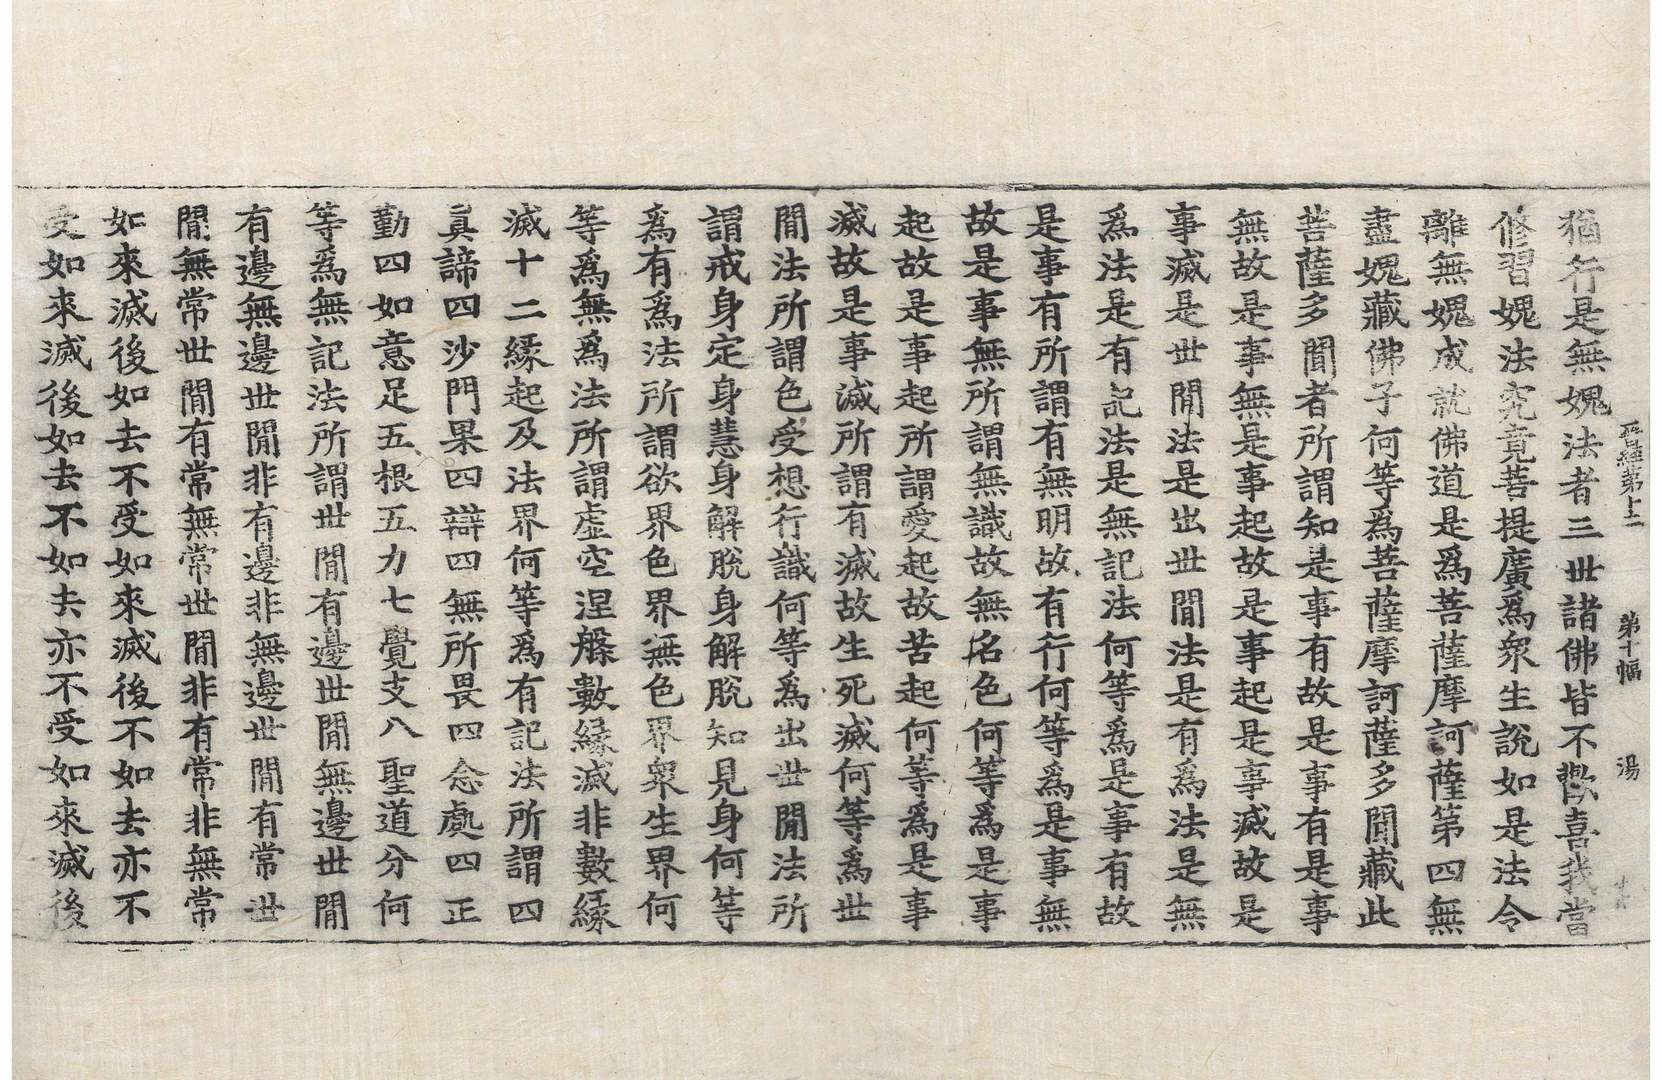 晉經第十二 第十幅 湯
猶行是無媿法者三世諸佛皆不歡喜我當
修習媿法究竟菩提廣爲衆生說如是法令
離無媿成就佛道是爲菩薩摩訶薩第四無
盡媿藏佛子何等爲菩薩摩訶薩多聞藏此
菩薩多聞者所謂知是事有故是事有是事
無故是事無是事起故是事起是事滅故是
事滅是世閒法是出世閒法是有爲法是無
爲法是有記法是無記法何等爲是事有故
是事有所謂有無明故有行何等爲是事無
故是事無所謂無識故無名色何等爲是事
起故是事起所謂愛起故苦起何等爲是事
滅故是事滅所謂有滅故生死滅何等爲世
閒法所謂色受想行識何等爲出世閒法所
謂戒身定身慧身解脫身解脫知見身何等
爲有爲法所謂欲界色界無色界衆生界何
等爲無爲法所謂虛空涅槃數緣滅非數緣
滅十二緣起及法界何等爲有記法所謂四
眞諦四沙門果四辯四無所畏四念處四正
勤四如意足五根五力七覺支八聖道分何
等爲無記法所謂世閒有邊世閒無邊世閒
有邊無邊世閒非有邊非無邊世閒有常世
閒無常世閒有常無常世閒非有常非無常
如來滅後如去不受如來滅後不如去亦不
受如來滅後如去不如去亦不受如來滅後